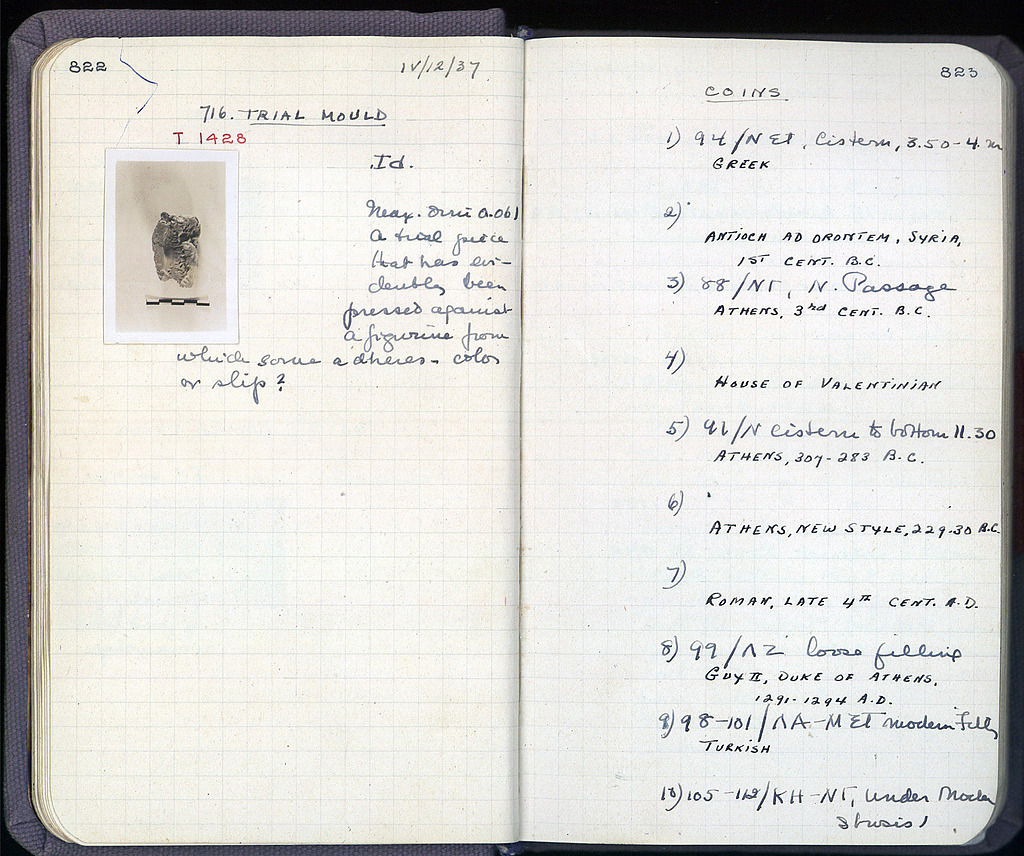 822
IV/12/37
716. TRIAL MOULD
T 1428
Id.
Max. Dim 0.061
A trial piece
that has evi-
dently been
pressed against
a figurine from
which some adheres - color
or slip?
823
COINS
1) 94/ Cistern, 3.50-4. m
GREEK
2)
ANTIOCH AD ORONTEM, SYRIA,
1ST CENT. B.C.
3) 88/ N. Passage
ATHENS, 3rd CENT. B.C.
4)
HOUSE OF VALENTINIAN
5) 91/N cistern to bottom 11.30
ATHENS, 307-283 B.C.
6)
ATHENS, NEW STYLE, 229-30 B.C.
7)
ROMAN, LATE 4TH CENT. A.D.
8) 99/ loose filling
GUY II, DUKE OF ATHENS,
1291-1294 A.D.
9) 98-101/ modern
TURKISH
10) 105- under